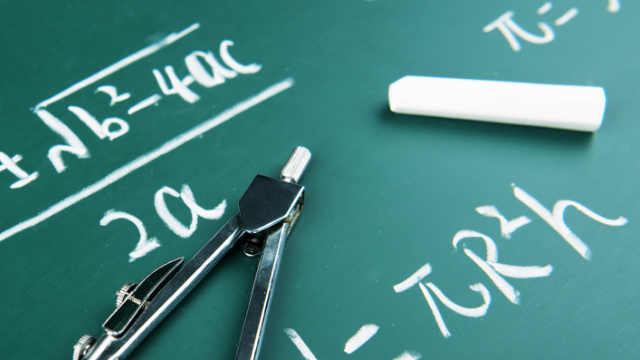 ± √b² - 4ac
2a
π =
πR²h